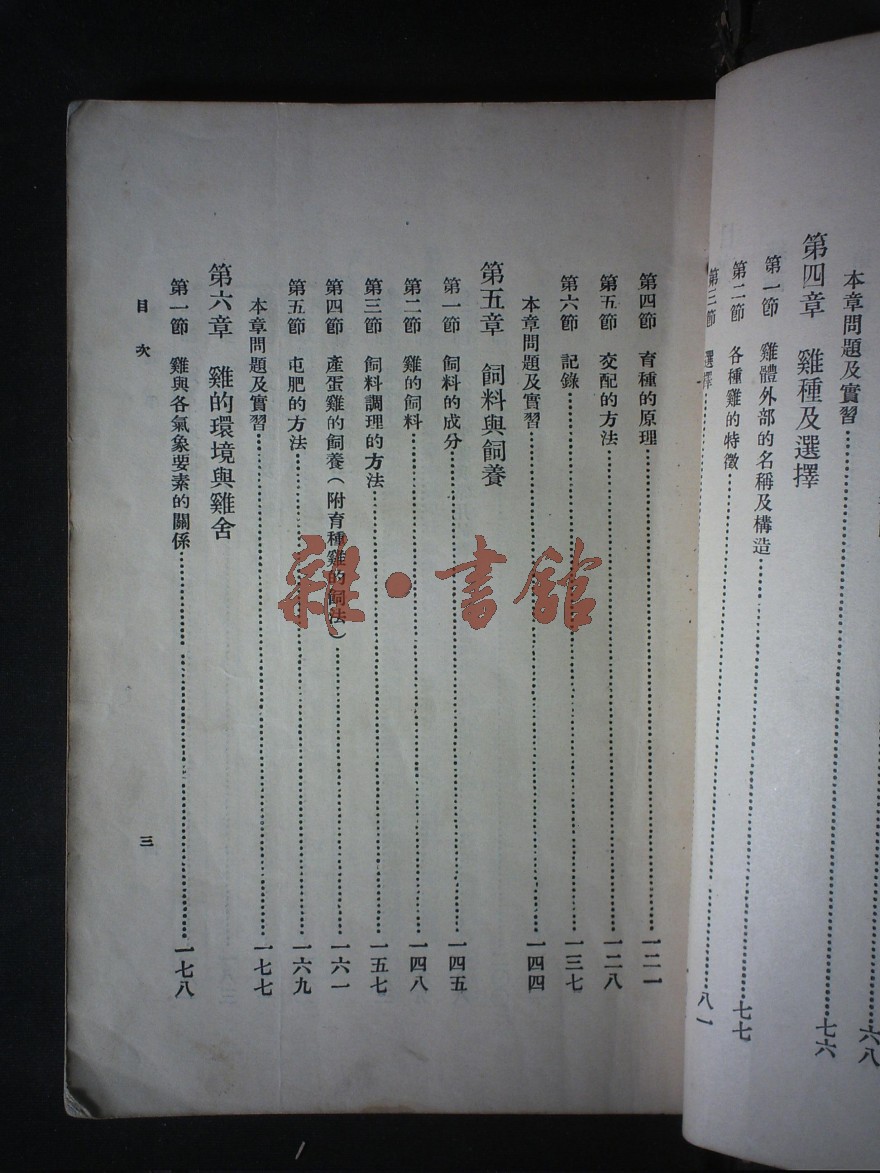 六八
本章問題及實習……七六
第四章　雞種及選擇
第一節　雞體外部的名稱及構造……七七
第二節　各種雞的特徵……八一
第三節　選擇……
第四節　育種的原理……一二一
第五節　交配的方法……一二八
第六節　記錄……一三七
本章問題及實習……一四四
第五章　飼料與飼養
第一節　飼料的成分……一四五
第二節　雞的飼料……一四八
第三節　飼料調理的方法……一五七
第四節　產蛋雞的飼養（附育種雞的飼法）……一六一
第五節　屯肥的方法……一六九
本章問題及實習……一七七
第六章　雞的環境與雞舍
第一節　雞與各氣象要素的關係……一七八
目次　三
雜·書館